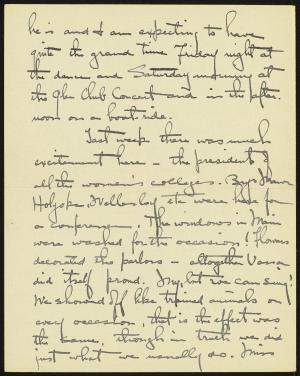 he is and I am expecting to have
quite the grand time Friday night at
the dance and Saturday morning at
the Glee Club Concert and in the after-
noon on a boat ride.
Last week there was much
excitement here - the presidents of
all the women's colleges. Bryn Mawr
Holyoke, Wellesley - etc were here for
a conference. The windows in Main
were washed for the occasion! Flowers
decorated the parlors - altogether Vassar
did itself proud. My, but we can swing!
We showed off like trained animals on
every occasion, that is the effect was
the same, though in truth we did
just what we usually do. Miss